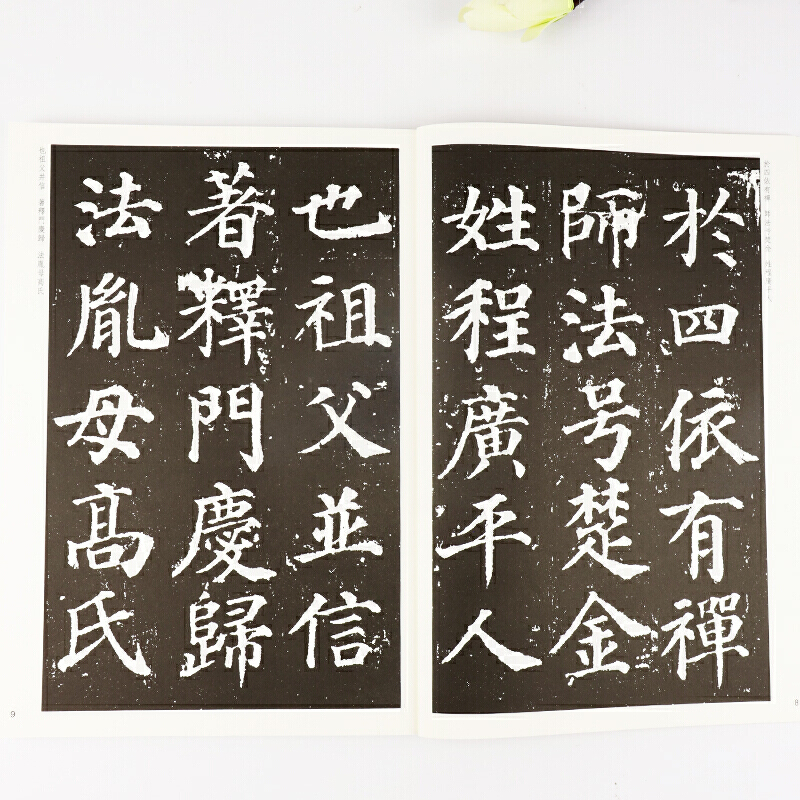 於四依有禪
師法号楚金
姓程廣平人
也祖父並信
著釋門慶歸
法胤母髙氏
8
9